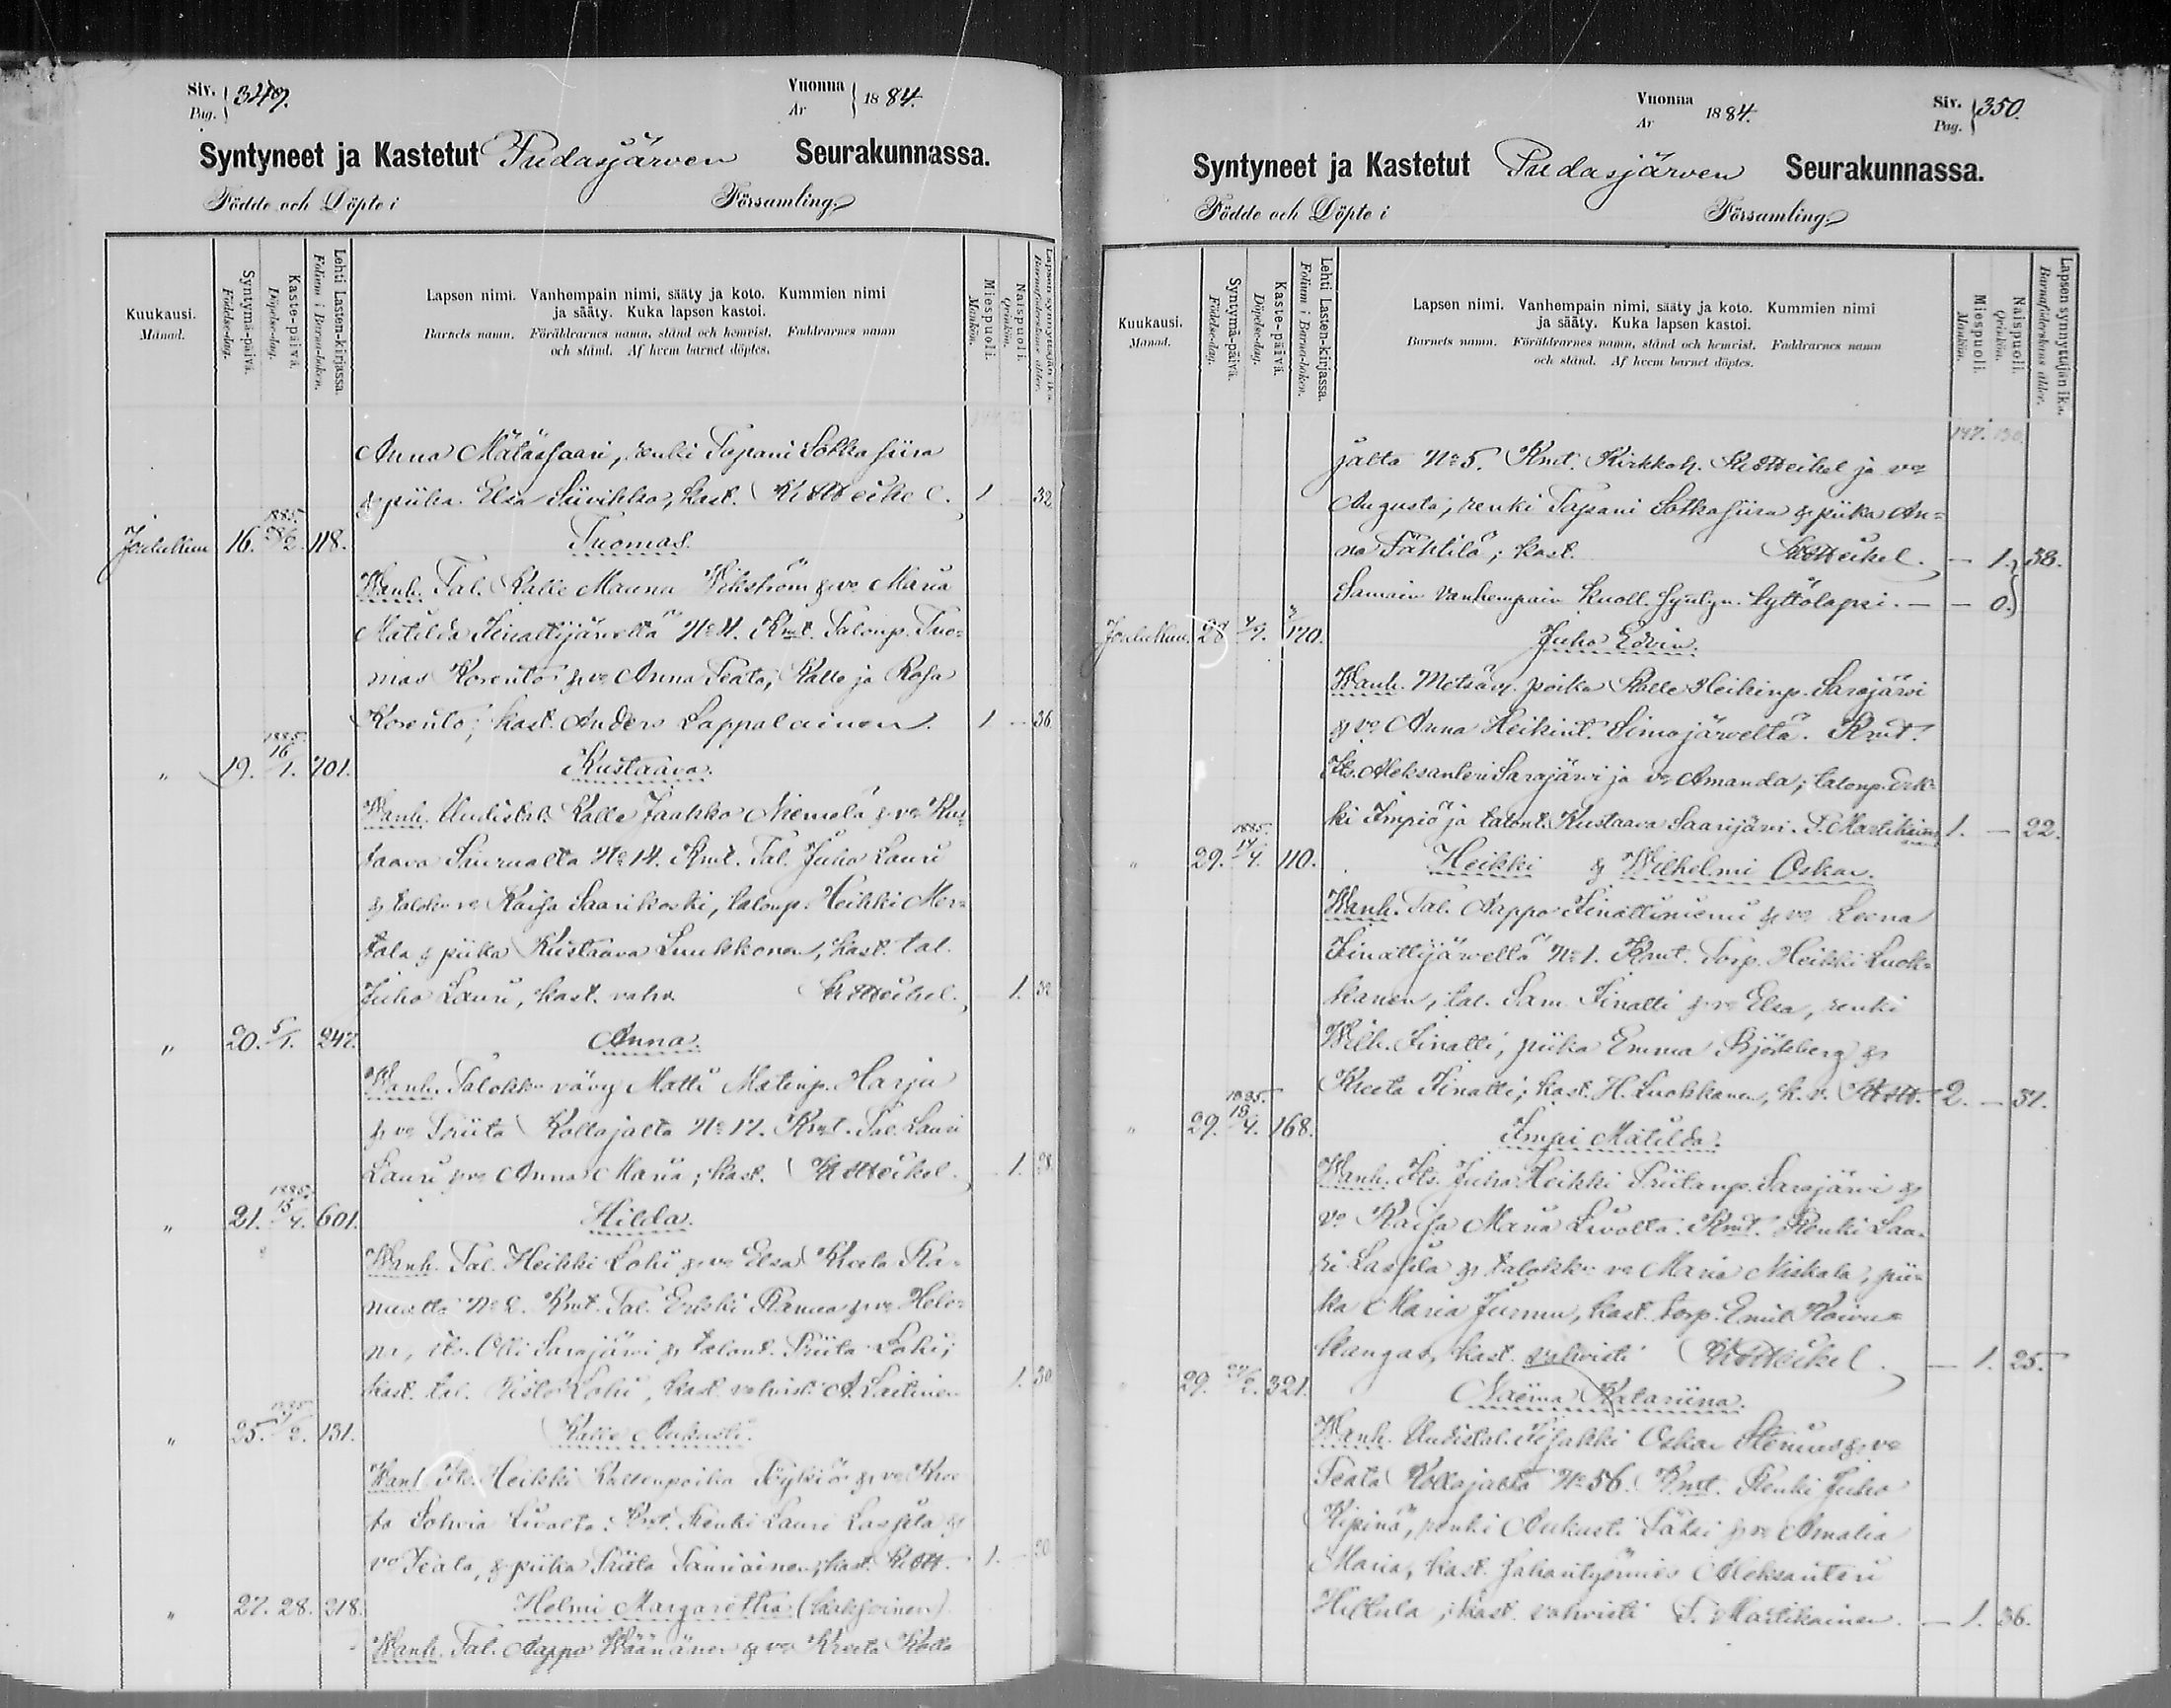 Siv. Pag. 349.
Vuonna År 1884.
Syntyneet ja Kastetut Pudasjärven Seurakunnassa.
Födde och Döpte i Församling.
Kuukausi. Månad.
Syntymä-päivä. Födelse-dag.
Kaste-päivä. Döpelse-dag.
Lehti Lasten-kirjassa. Folium i Barna-boken.
Lapsen nimi. Vanhempain nimi, sääty ja koto. Kummien nimi
ja sääty. Kuka lapsen kastoi.
Barnets namn. Föräldrarnes namn, stånd och hemvist. Faddrarnes namn
och stånd. Af hvem barnet döptes.
Miespuoli. Mankön.
Naispuoli. Qvinkön.
Lapsen synnyttäjän ikä. Barnaföderskans ålder.
Anna Mätäsaari, renki Tapani Sotkasiira
& piika Elsa Siivikko, kast. 1 – 32.
Joulukuu 16. 1885. 28/2. 118. Tuomas.
Wanh. Tal. Kalle Mauna Wikström & vo Maria
Matilda Iinattijärveltä No 4. Kmt. Talonp. Tuo-
mas Korento & vo Anna Teata; Kalle ja Kaisa
Korento; kast. Anders Lappalainen. 1 – 36
" 19. 1885. 16/1. 701. Kustaava.
Wanh. Uudistal. Kalle Jaakko Niemelä & vo Kus-
taava Siurualta No 14. Kmt. Tal. Juho Lauri
& talok. vo Kaisa Saarikoski, talonp. Heikki Mer-
tala & piika Kustaava Luukkonen, kast. tal.
Juho Lauri, kast. vahv. 1. 32
" 20. 5/1. 247. Anna.
Wanh. Talokk. vävy Matti Matinp. Harju
& vo Priita Kollajalta No 17. Kmt. Tal. Lauri
Lauri & vo Anna Maria; kast. 1. 28
" 21. 1885. 15/4. 601. Hilda.
Wanh. Tal. Heikki Lohi & vo Elsa Kreeta Ra-
nualta No 2. Kmt. Tal. Erkki Ranua & vo Hele-
na, its. Olli Sarajärvi & talont. Priita Lohi;
kast. tal. Lohi, kast. vahvisti A. Laitinen 1. 30
" 25. 1885. /2. 131. Kalle Aukusti.
Wanh. Its. Heikki Kallenpoika Töykiö & vo Kree-
ta Sohvia Livolta: Kmt. Renki Lauri Lassila &
vo Teata, & piika Priita Tauriainen; kast. 1. – 20
" 27. 28. 318. Helmi Margaretha (kaksoinen)
Wanh. Tal. Aappo Wäänänen & vo Kreeta Kolla
Vuonna År 1884.
Siv. Pag. 350.
Syntyneet ja Kastetut Pudasjärven Seurakunnassa.
Födde och Döpte i Församling.
Kuukausi. Månad.
Syntymä-päivä. Födelse-dag.
Kaste-päivä. Döpelse-dag.
Lehti Lasten-kirjassa. Folium i Barna-boken.
Lapsen nimi. Vanhempain nimi, sääty ja koto. Kummien nimi
ja sääty. Kuka lapsen kastoi.
Barnets namn. Föräldrarnes namn, stånd och hemvist. Faddrarnes namn
och stånd. Af hvem barnet döptes.
Miespuoli. Mankön.
Naispuoli. Qvinkön.
Lapsen synnyttäjän ikä. Barnaföderskans ålder.
147. 130.
jalta No 5. Kmt. Kirkkoh. ja vo
Augusta; renki Tapani Sotkasiira & piika An-
na Tähtilä; kast. – 1. } 38.
Samain vanhempain kuoll. synlyn. tyttölapsi. – – 0.
Joulukuu. 28 170. Juho Edvin.
Wanh. Metsäv. poika Kalle Heikinp. Sarajärvi
& vo Anna Heikint. Simojärveltä. Kmt.
Its. Aleksanteri Sarajärvi ja vo Amanda; talonp. Erk-
ki Impiö ja talont. Kustaava Saarijärvi. T. Martikainen 1. – 22.
" 29. 1885. 14/4. 110. Heikki & Wilhelmi Oskar.
Wanh. Tal. Aappo Iinattiniemi & vo Leena
Iinattijärveltä No 1. Kmt. Torp. Heikki Luok-
kanen, tal. Sam. Iinatti & vo Elsa, renki
Wilh. Iinatti, piika Emma Björkberg &
Kreeta Iinatti; kast. H. Luokkanen, k. v. 2. – 37.
" 29. 1885. 15/4. 168. Impi Matilda.
Wanh. Its. Juho Heikki Priitanp. Sarajärvi &
vo Kaisa Maria Livolta. Kmt. Renki Laa-
ri Lassila & talokk. vo Maria Niskala, pii-
ka Maria Jurmu, kast. torp. Emil Koivu-
kangas, kast. vahvisti – 1. 25.
" 29. 321. Naëma Katariina.
Wanh. Uudistal. Iisakki Oskar Stenius & vo
Teata Kollajalta No 56. Kmt. Renki Juho
Kipinä, renki Aukusti Tätsi & vo Amalia
Maria, kast. sahantyömies Aleksanteri
Hiltula; kast. vahvisti T. Martikainen. – 1. 36.